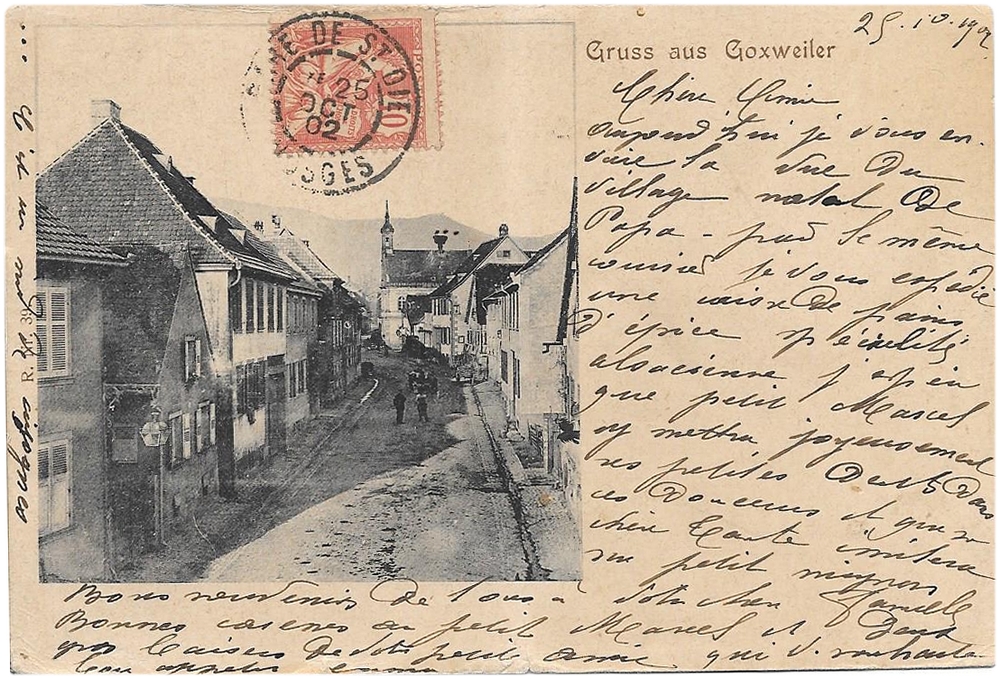 25.10.1902
Gruss aus Goxweiler
DE ST. DIÉ
25
OCT
02
VOSGES
10
POSTES
Chère Amie
aujourd'hui je vous en-
voie la vue du
village natal de
Papa - par le même
courrier je vous expédie
une caisse de pains
d'épice spécialité
alsacienne j'espère
que petit Marcel
y mettra joyeusement
ses petites dents dans
ces douceurs et que sa
chère Tante imitera
son petit mignon
Bons souvenirs de tous à votre chère famille
Bonnes caresses au petit Marcel et deux
gros baisers de votre petite amie qui v. souhaite
bon appétit
R. 39